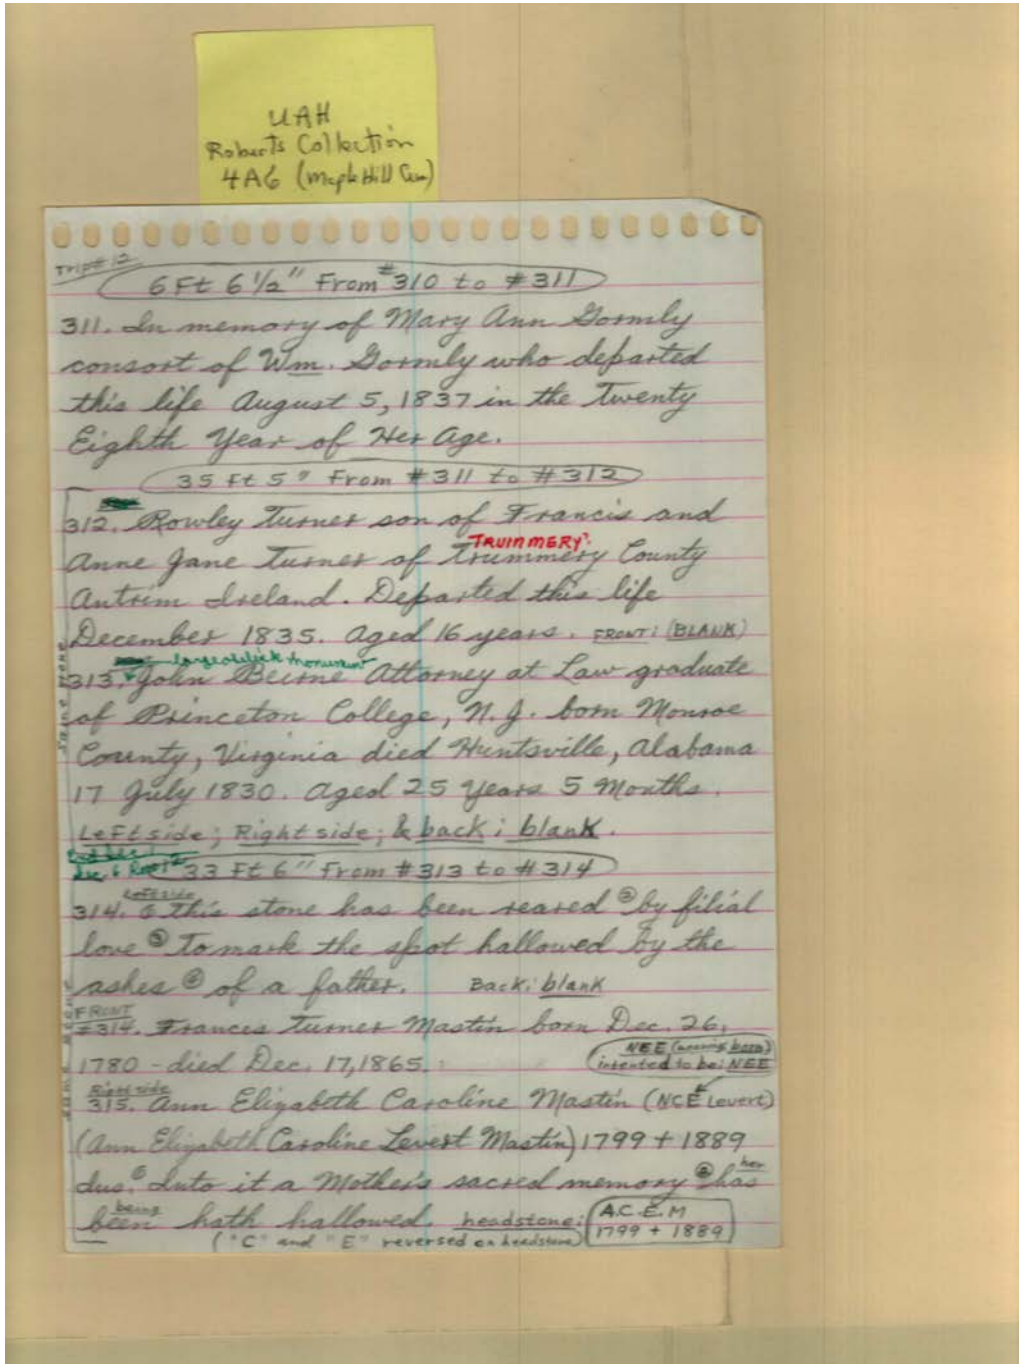 UAH
Roberts Collection
4A6 (Maple Hill Cem)
Trip #12
6 Ft 6 1/2" From #310 to #311
311. In memory of Mary Ann Gormly
consort of Wm. Gormly who departed
this life August 5, 1837 in the Twenty
Eighth Year of Her Age.
35 Ft 5" From #311 to #312
312. Rowley Turner son of Francis and
TRUMMERY?
Anne Jane Turner of Trummery County
Antrim Ireland. Departed this life
December 1835. Aged 16 years. FRONT: (BLANK)
large obelisk monument
313. John Beirne Attorney at Law graduate
of Princeton College, N.J. born Monroe
County, Virginia died Huntsville, Alabama
17 July 1830. Aged 25 Years 5 Months.
Left side; Right side; & back: blank.
same stone
33 Ft 6" From #313 to #314
Left side
314. ① This stone has been reared ② by filial
love ③ To mark the spot hallowed by the
ashes ④ of a father. Back: blank
FRONT
#314. Frances Turner Mastin born Dec. 26,
1780 - died Dec. 17, 1865.
NEE (meaning born)
intented to be: NEE
Right side
315. Ann Elizabeth Caroline Mastin (NCE Levert)
(Ann Elizabeth Caroline Levert Mastin) 1799 + 1889
same stone
dus. ① Into it a Mother's sacred memory ② has
her
being
been hath hallowed. headstone: A.C.E.M
1799 + 1889
("C" and "E" reversed on headstone)